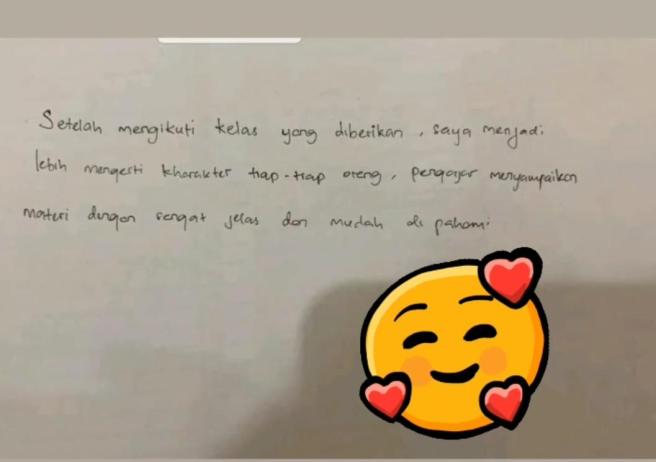 Setelah mengikuti kelas yang diberikan, saya menjadi
lebih mengerti kharakter tiap-tiap orang, pengajar menyampaikan
materi dengan sangat jelas dan mudah di pahami